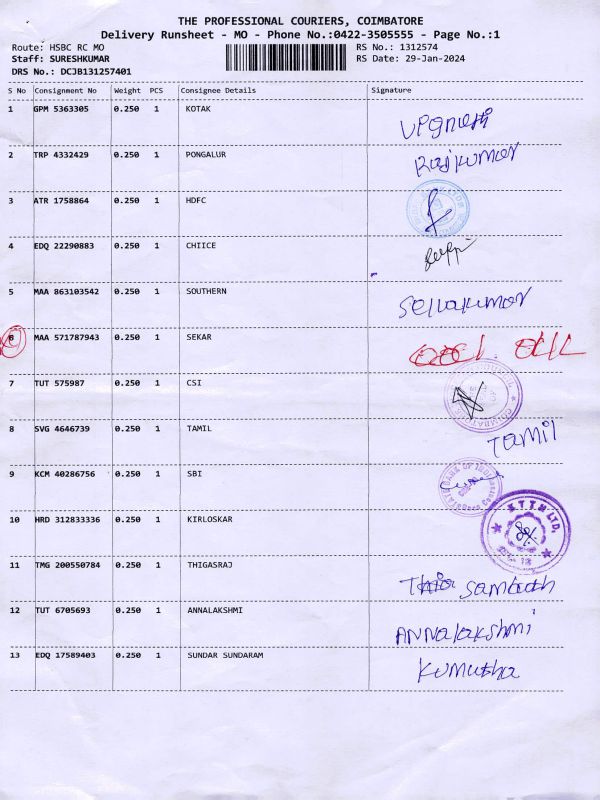 THE PROFESSIONAL COURIERS, COIMBATORE
Delivery Runsheet - MO - Phone No.:0422-3505555 - Page No.:1
Route: HSBC RC MO RS No.: 1312574
Staff: SURESHKUMAR RS Date: 29-Jan-2024
DRS No.: DCJB131257401
S No Consignment No Weight PCS Consignee Details Signature
1 GPM 5363305 0.250 1 KOTAK
2 TRP 4332429 0.250 1 PONGALUR Rajkumar
3 ATR 1758864 0.250 1 HDFC
4 EDQ 22290883 0.250 1 CHIICE
5 MAA 863103542 0.250 1 SOUTHERN Selvakumar
6 MAA 571787943 0.250 1 SEKAR
7 TUT 575987 0.250 1 CSI COIMBATORE
8 SVG 4646739 0.250 1 TAMIL TAMIL
9 KCM 40286756 0.250 1 SBI BANK OF INDIA
10 HRD 312833336 0.250 1 KIRLOSKAR LTD.
11 TMG 200550784 0.250 1 THIGASRAJ Sambath
12 TUT 6705693 0.250 1 ANNALAKSHMI ANNAlakshmi
13 EDQ 17589403 0.250 1 SUNDAR SUNDARAM Kumutha